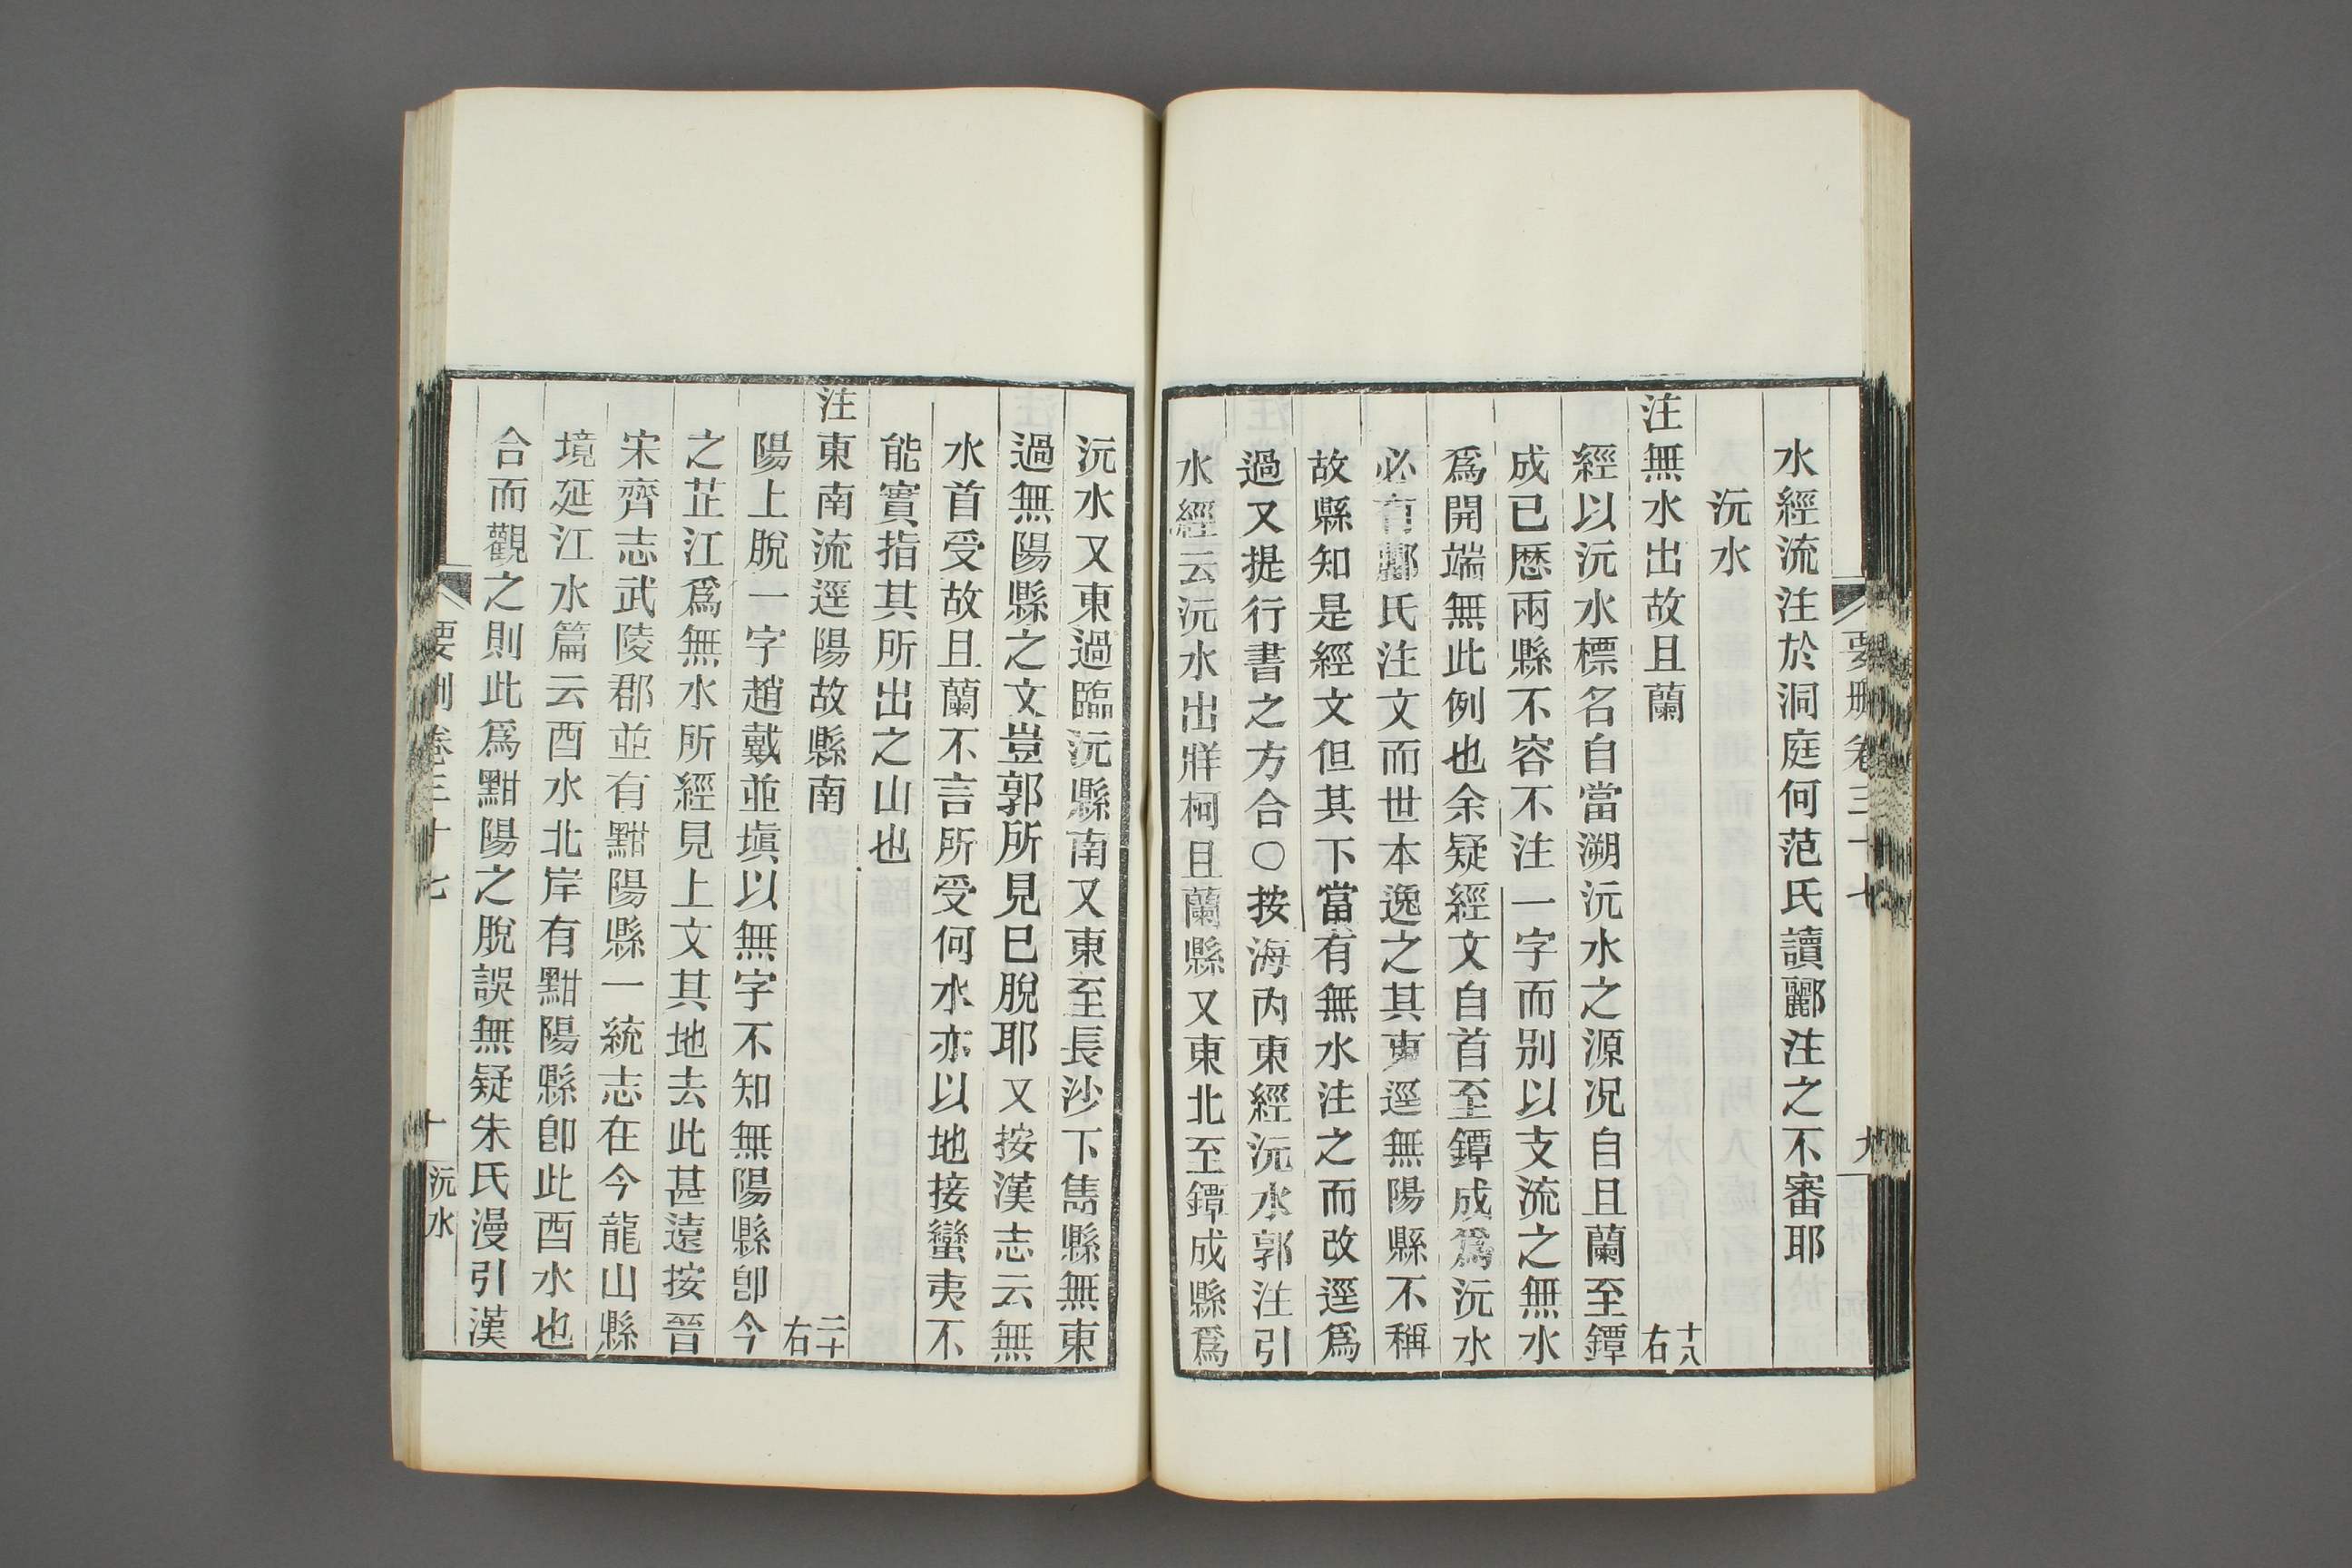 要刪卷三十七
九
水經流注於洞庭何范氏讀酈注之不審耶
沅水
注無水出故且蘭
十八
右
經以沅水標名自當溯沅水之源况自且蘭至鐔
成已厯兩縣不容不注一字而别以支流之無水
爲開端無此例也余疑經文自首至鐔成爲沅水
必有酈氏注文而世本逸之其東逕無陽縣不稱
故縣知是經文但其下當有無水注之而改逕爲
過又提行書之方合〇按海内東經沅水郭注引
水經云沅水出牂柯且蘭縣又東北至鐔成縣爲
沅水又東過臨沅縣南又東至長沙下雋縣無東
過無陽縣之文豈郭所見已脫耶又按漢志云無
水首受故且蘭不言所受何水亦以地接蠻夷不
能實指其所出之山也
注東南流逕陽故縣南
二十
右
陽上脫一字趙戴並塡以無字不知無陽縣卽今
之芷江爲無水所經見上文其地去此甚遠按晉
宋齊志武陵郡並有黚陽縣一統志在今龍山縣
境延江水篇云酉水北岸有黚陽縣卽此酉水也
合而觀之則此爲黚陽之脫誤無疑朱氏漫引漢
要刪卷三十七
十
沅水